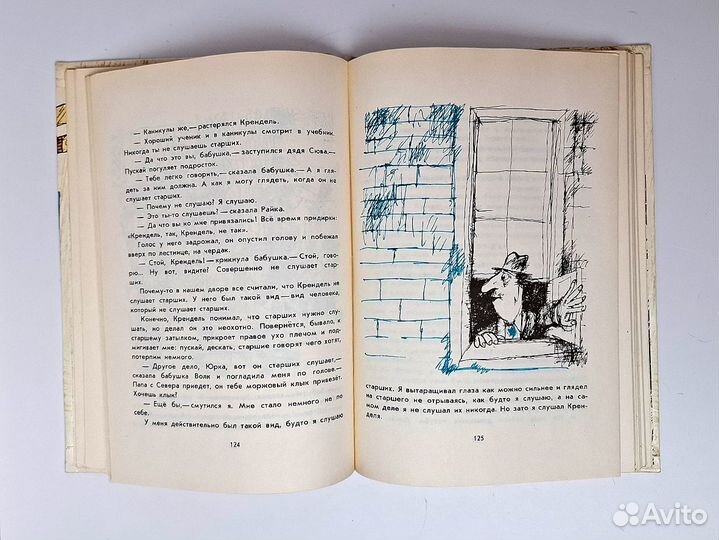 — Каникулы же,— растерялся Крендель.
— Хороший ученик и в каникулы смотрит в учебник.
Никогда ты не слушаешь старших.
— Да что это вы, бабушка,— заступился дядя Сюва.—
Пускай погуляет подросток.
— Тебе легко говорить,— сказала бабушка.— А я гля-
деть за ним должна. А как я могу глядеть, когда он не
слушает старших.
— Почему не слушаю? Я слушаю.
— Это ты-то слушаешь? — сказала Райка.
— Да что вы ко мне привязались! Всё время придирки:
«Крендель, так, Крендель, не так».
Голос у него задрожал, он опустил голову и побежал
вверх по лестнице, на чердак.
— Стой, Крендель! — крикнула бабушка.— Стой, гово-
рю... Ну вот, видите! Совершенно не слушает стар-
ших.
Почему-то в нашем дворе все считали, что Крендель не
слушает старших. У него был такой вид — вид человека,
который не слушает старших.
Конечно, Крендель понимал, что старших нужно слу-
шать, но делал он это неохотно. Повернётся, бывало, к
старшему затылком, прикроет правое ухо плечом и под-
мигивает мне: пускай, дескать, старшие говорят что хотят,
потерпим немного.
— Другое дело, Юрка, вот он старших слушает,—
сказала бабушка Волк и погладила меня по голове.—
Папа с Севера приедет, он тебе моржовый клык привезёт.
Хочешь клык?
— Ещё бы,— смутился я. Мне стало немного не по
себе.
У меня действительно был такой вид, будто я слушаю
124
старших. Я вытаращивал глаза как можно сильнее и глядел
на старшего не отрываясь, как будто я слушаю, а на са-
мом деле я не слушал их никогда. Но зато я слушал Крен-
деля.
125
Avito